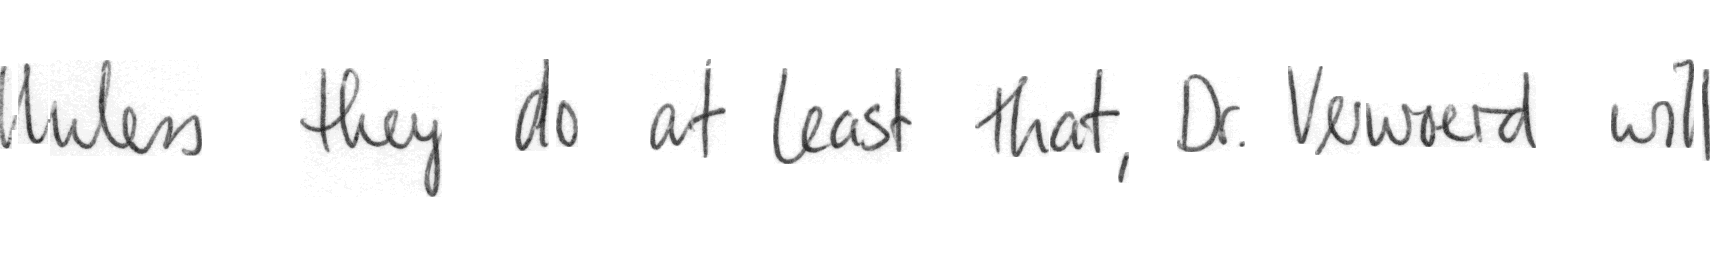 Unless they do at least that, Dr. Verwoerd will